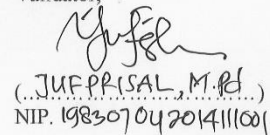 (..JUFPRISAL, M.Pd..)
NIP. 198307042014111001